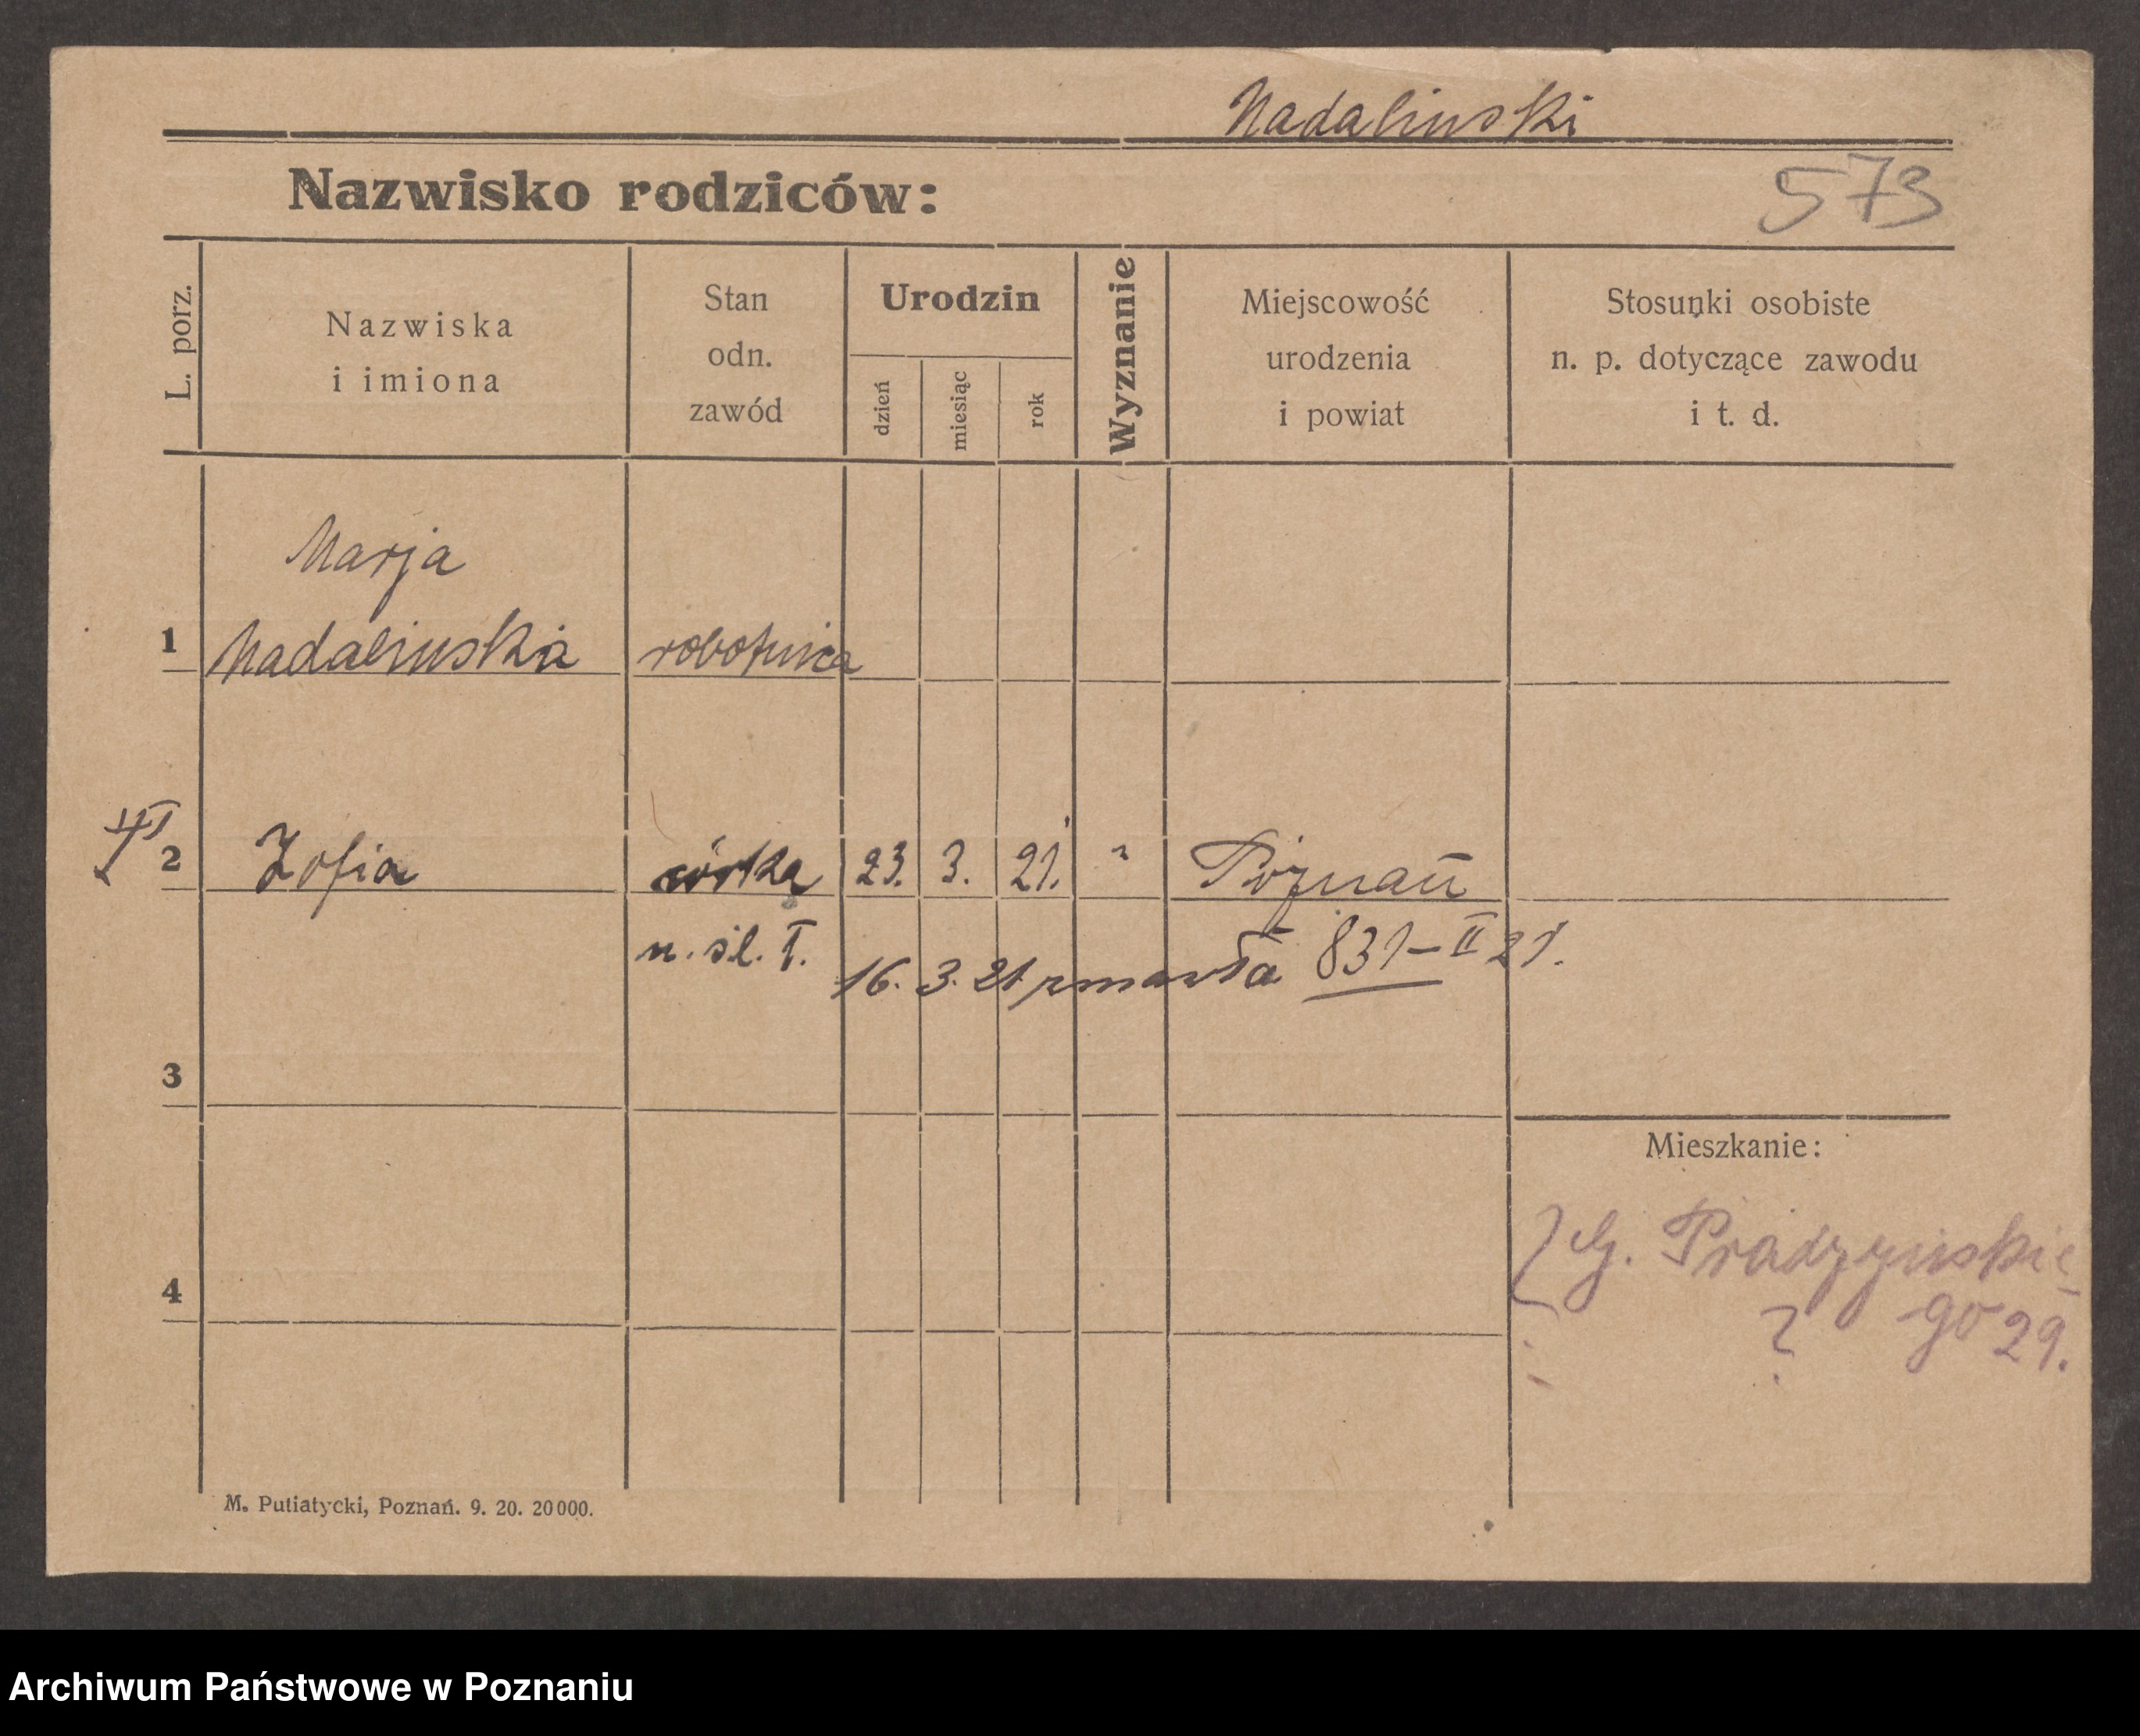 Nadalinski
Nazwisko rodziców:
573
L. porz.
Nazwiska
i imiona
Stan
odn.
zawód
Urodzin
dzień
miesiąc
rok
Wyznanie
Miejscowość
urodzenia
i powiat
Stosunki osobiste
n. p. dotyczące zawodu
i t. d.
Marja
1 Nadalinska robotnica
2 Zofia córka 23. 3. 21. Poznań
n. śl. T.
16. 3. 21 zmarła 831-II 21.
3
Mieszkanie:
G. Prądzyńskie
4
? go 29.
M. Putiatycki, Poznań. 9. 20. 20000.
Archiwum Państwowe w Poznaniu